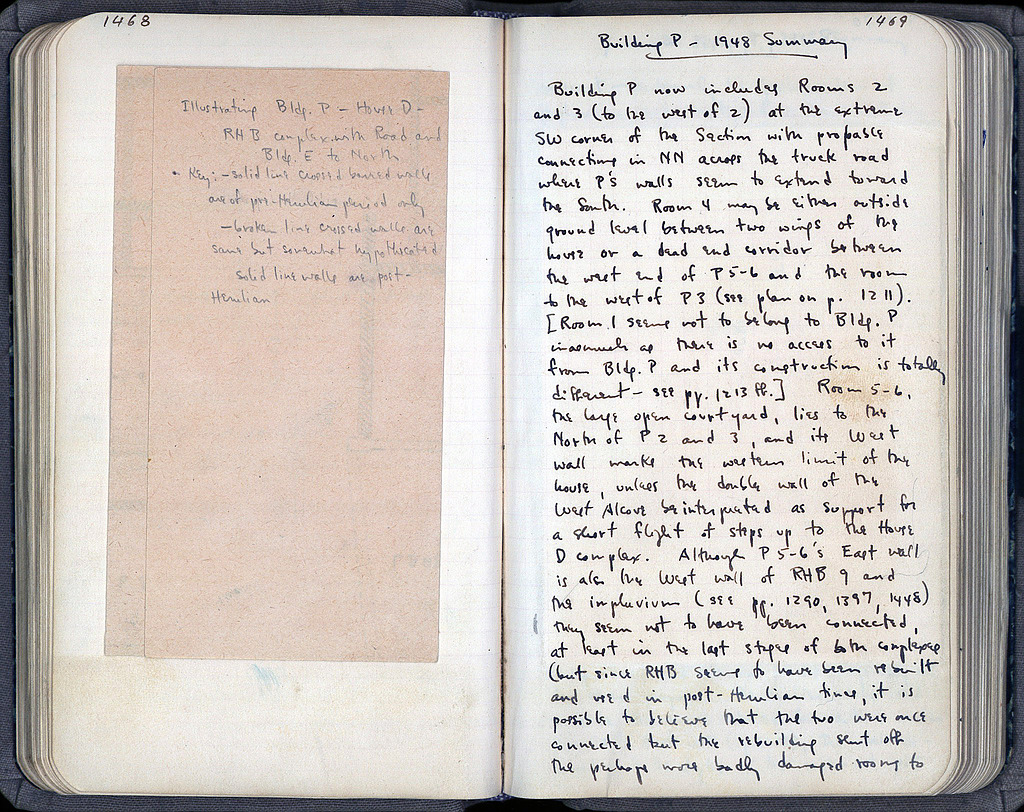 1468
Illustrating Bldg. P – House D –
RHB complex with Road and
Bldg. E to North
• Key: – solid line crossed walls
are of pre-Herulian period only
– broken line crossed walls are
same but somewhat hypothicated
solid line walls are post-
Herulian
1469
Building P – 1948 Summary
Building P now includes Rooms 2
and 3 (to the west of 2) at the extreme
SW corner of the Section with probable
connections in NN across the truck road
where P's walls seem to extend toward
the South. Room 4 may be either outside
ground level between two wings of the
house or a dead end corridor between
the west end of P5-6 and the room
to the west of P3 (see plan on p. 1211).
[Room 1 seems not to belong to Bldg. P
inasmuch as there is no access to it
from Bldg. P and its construction is totally
different – see pp. 1213 ff.] Room 5-6,
the large open courtyard, lies to the
North of P2 and 3, and its West
wall marks the western limit of the
house, unless the double wall of the
West Alcove be interpreted as support for
a short flight of steps up to the House
D complex. Although P5-6's East wall
is also the West wall of RHB 9 and
the impluvium (see pp. 1290, 1397, 1448)
they seem not to have been connected,
at least in the last stages of both complexes
(but since RHB seems to have been rebuilt
and used in post-Herulian times, it is
possible to believe that the two were once
connected but the rebuilding shut off
the perhaps more badly damaged rooms to